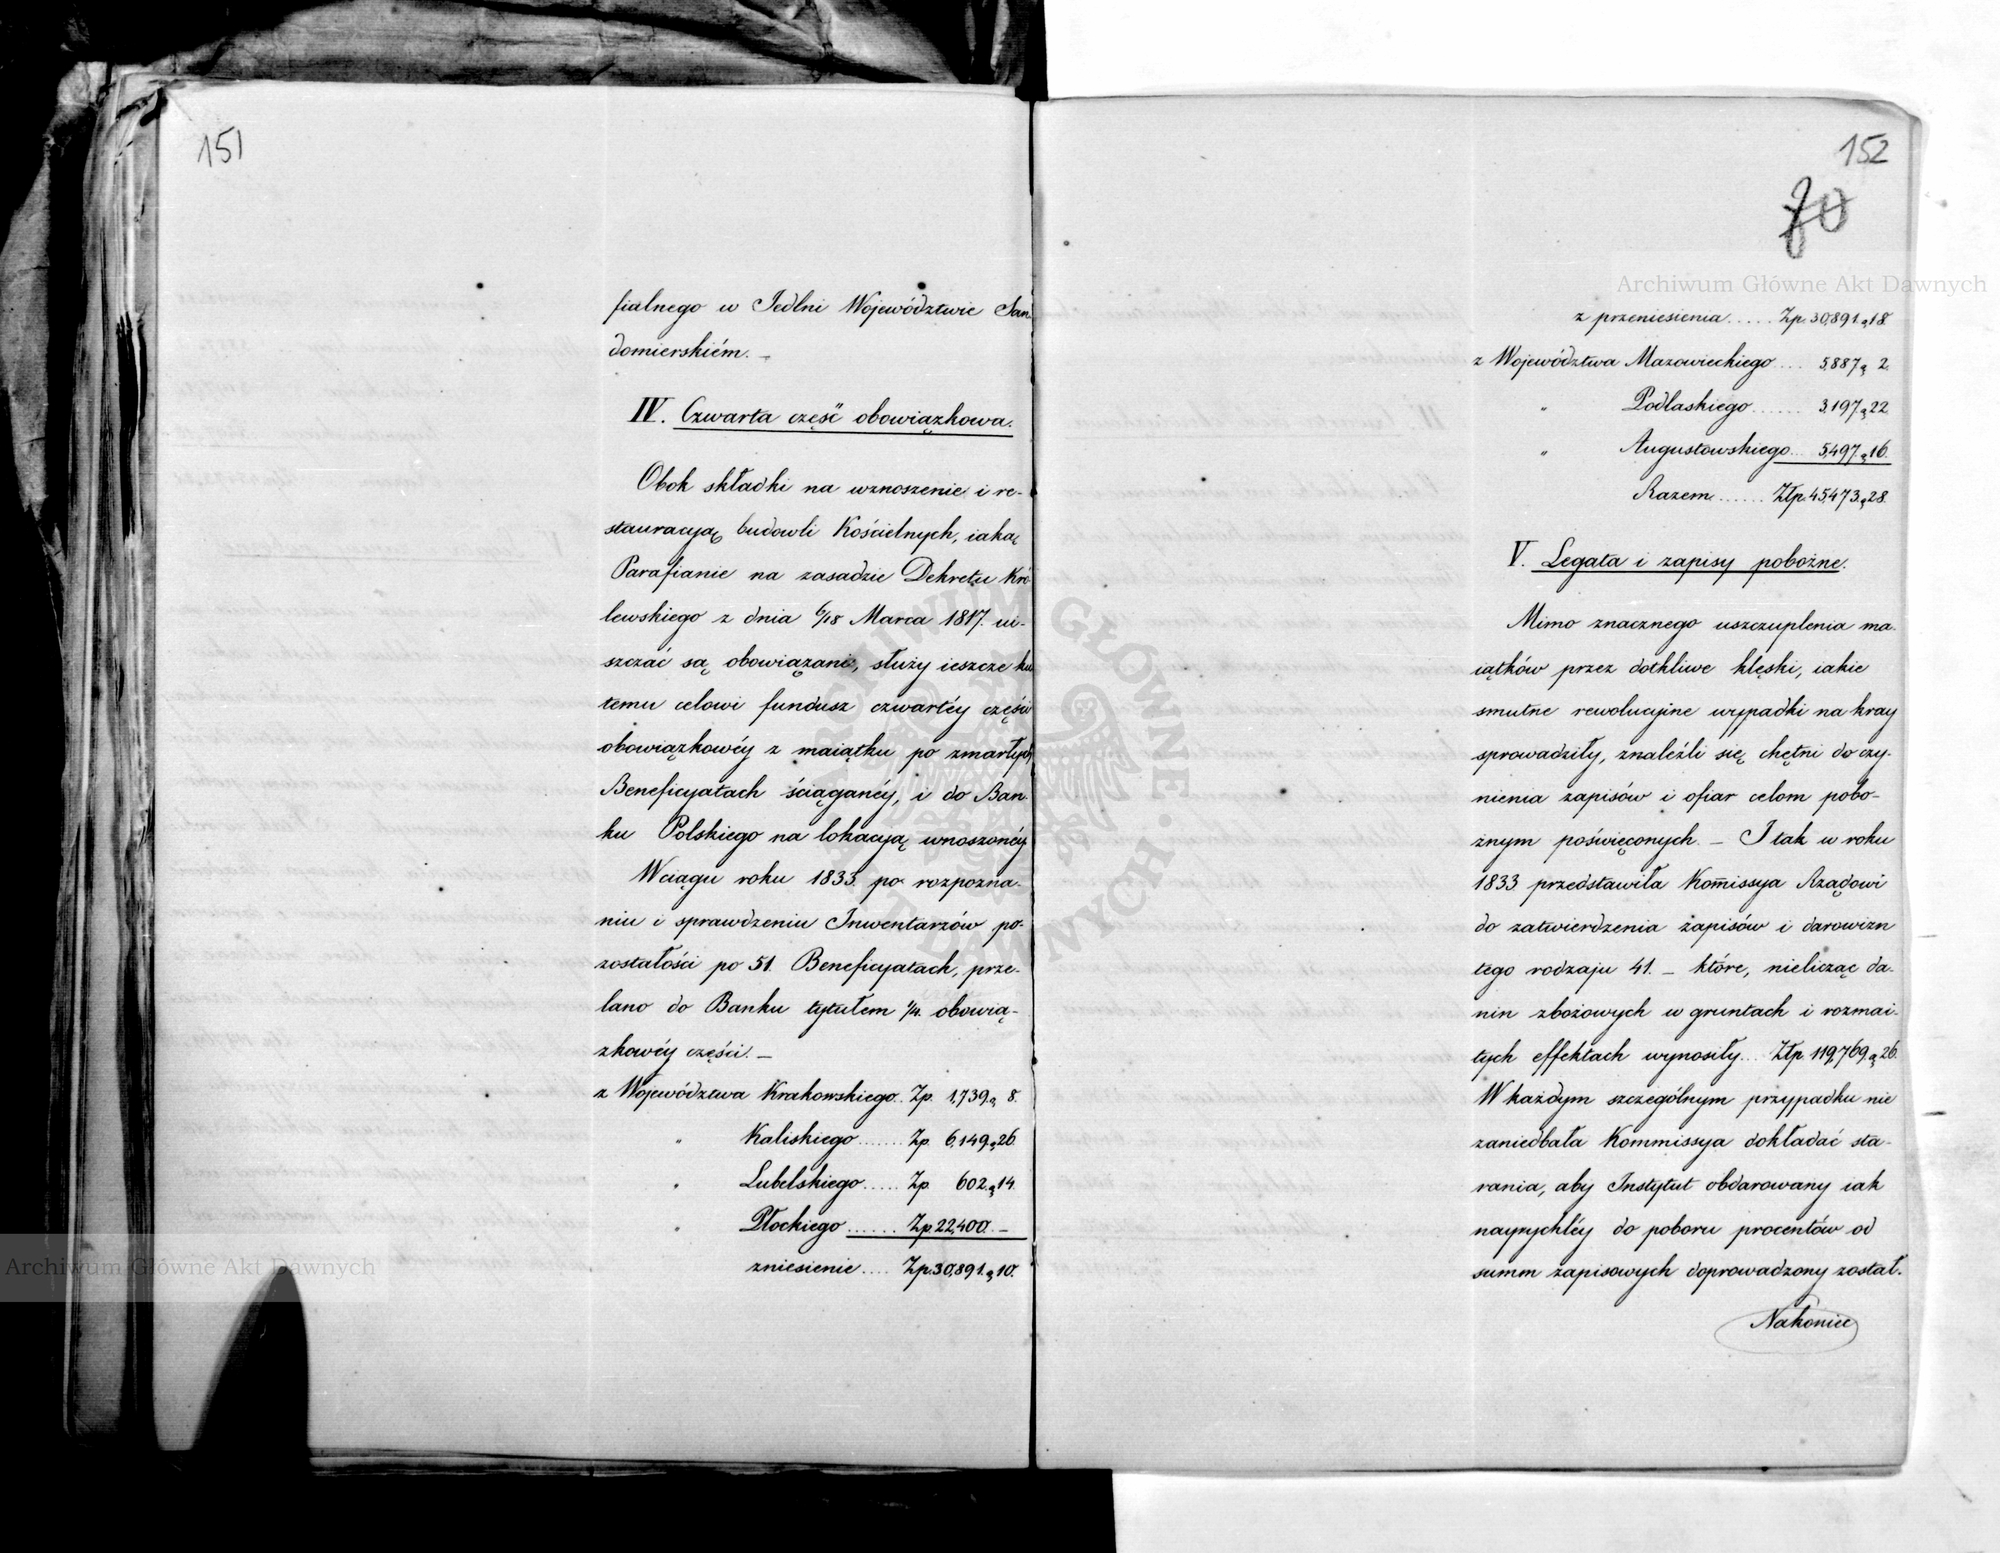 151
fialnego w Jedlni Województwie San-
domierskiém. —
IV. Czwarta część obowiązkowa.
Obok składki na wznoszenie i re-
stauracyą budowli Kościelnych, iaką
Parafianie na zasadzie Dekretu Kró-
lewskiego z dnia 6/18 Marca 1817. ui-
szczać są obowiązani, służy ieszcze ku
temu celowi fundusz czwartéy części
obowiązkowéy z maiątku po zmarłych
Beneficyatach ściąganéy, i do Ban-
ku Polskiego na lokacyą wnoszonéy
Wciągu roku 1833. po rozpozna-
niu i sprawdzeniu Inwentarzów po-
zostałości po 51. Beneficyatach, prze-
lano do Banku tytułem 1/4. obowią-
zkowéy części. —
z Województwa Krakowskiego.. Zp. 1,739. g 8.
" Kaliskiego ....... Zp. 6,149. g 26.
" Lubelskiego ..... Zp. 602. g 14.
" Płockiego ....... Zp. 22,400. —
zniesienie .... Zp. 30,891. g 10.
152
70
z przeniesienia ..... Zp. 30,891. g 18.
z Województwa Mazowieckiego .... 5,887. g 2.
" Podlaskiego ...... 3,197. g 22.
" Augustowskiego ... 5,497. g 16.
Razem ...... Złp. 45,473. g 28.
V. Legata i zapisy pobożne.
Mimo znacznego uszczuplenia ma-
iątków przez dotkliwe klęski, iakie
smutne rewolucyine wypadki na kray
sprowadziły, znaleźli się chętni do czy-
nienia zapisów i ofiar celom pobo-
żnym poświęconych. — I tak w roku
1833 przedstawiła Kom̄issya Rządowi
do zatwierdzenia zapisów i darowizn
tego rodzaju 41. — które, nielicząc da-
nin zbożowych w gruntach i rozmai-
tych effektach wynosiły... Złp. 119,769. g 26.
W każdym szczególnym przypadku nie
zaniedbała Kommissya dokładać sta-
rania, aby Instytut obdarowany iak
nayrychléy do poboru procentów od
summ zapisowych doprowadzony został.
Nakoniec
Archiwum Główne Akt Dawnych
Archiwum Główne Akt Dawnych
ARCHIWUM GŁÓWNE AKT DAWNYCH